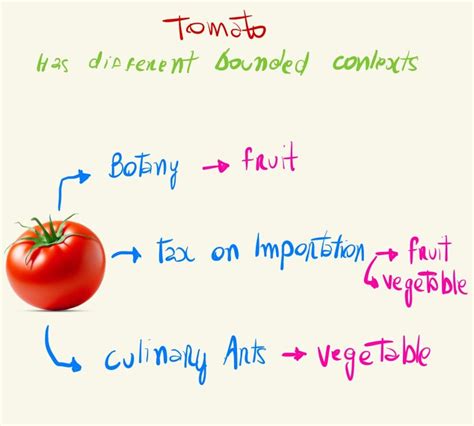 Tomato
Has different bounded contexts
Botany → fruit
tax on Importation → fruit
vegetable
culinary Arts → vegetable